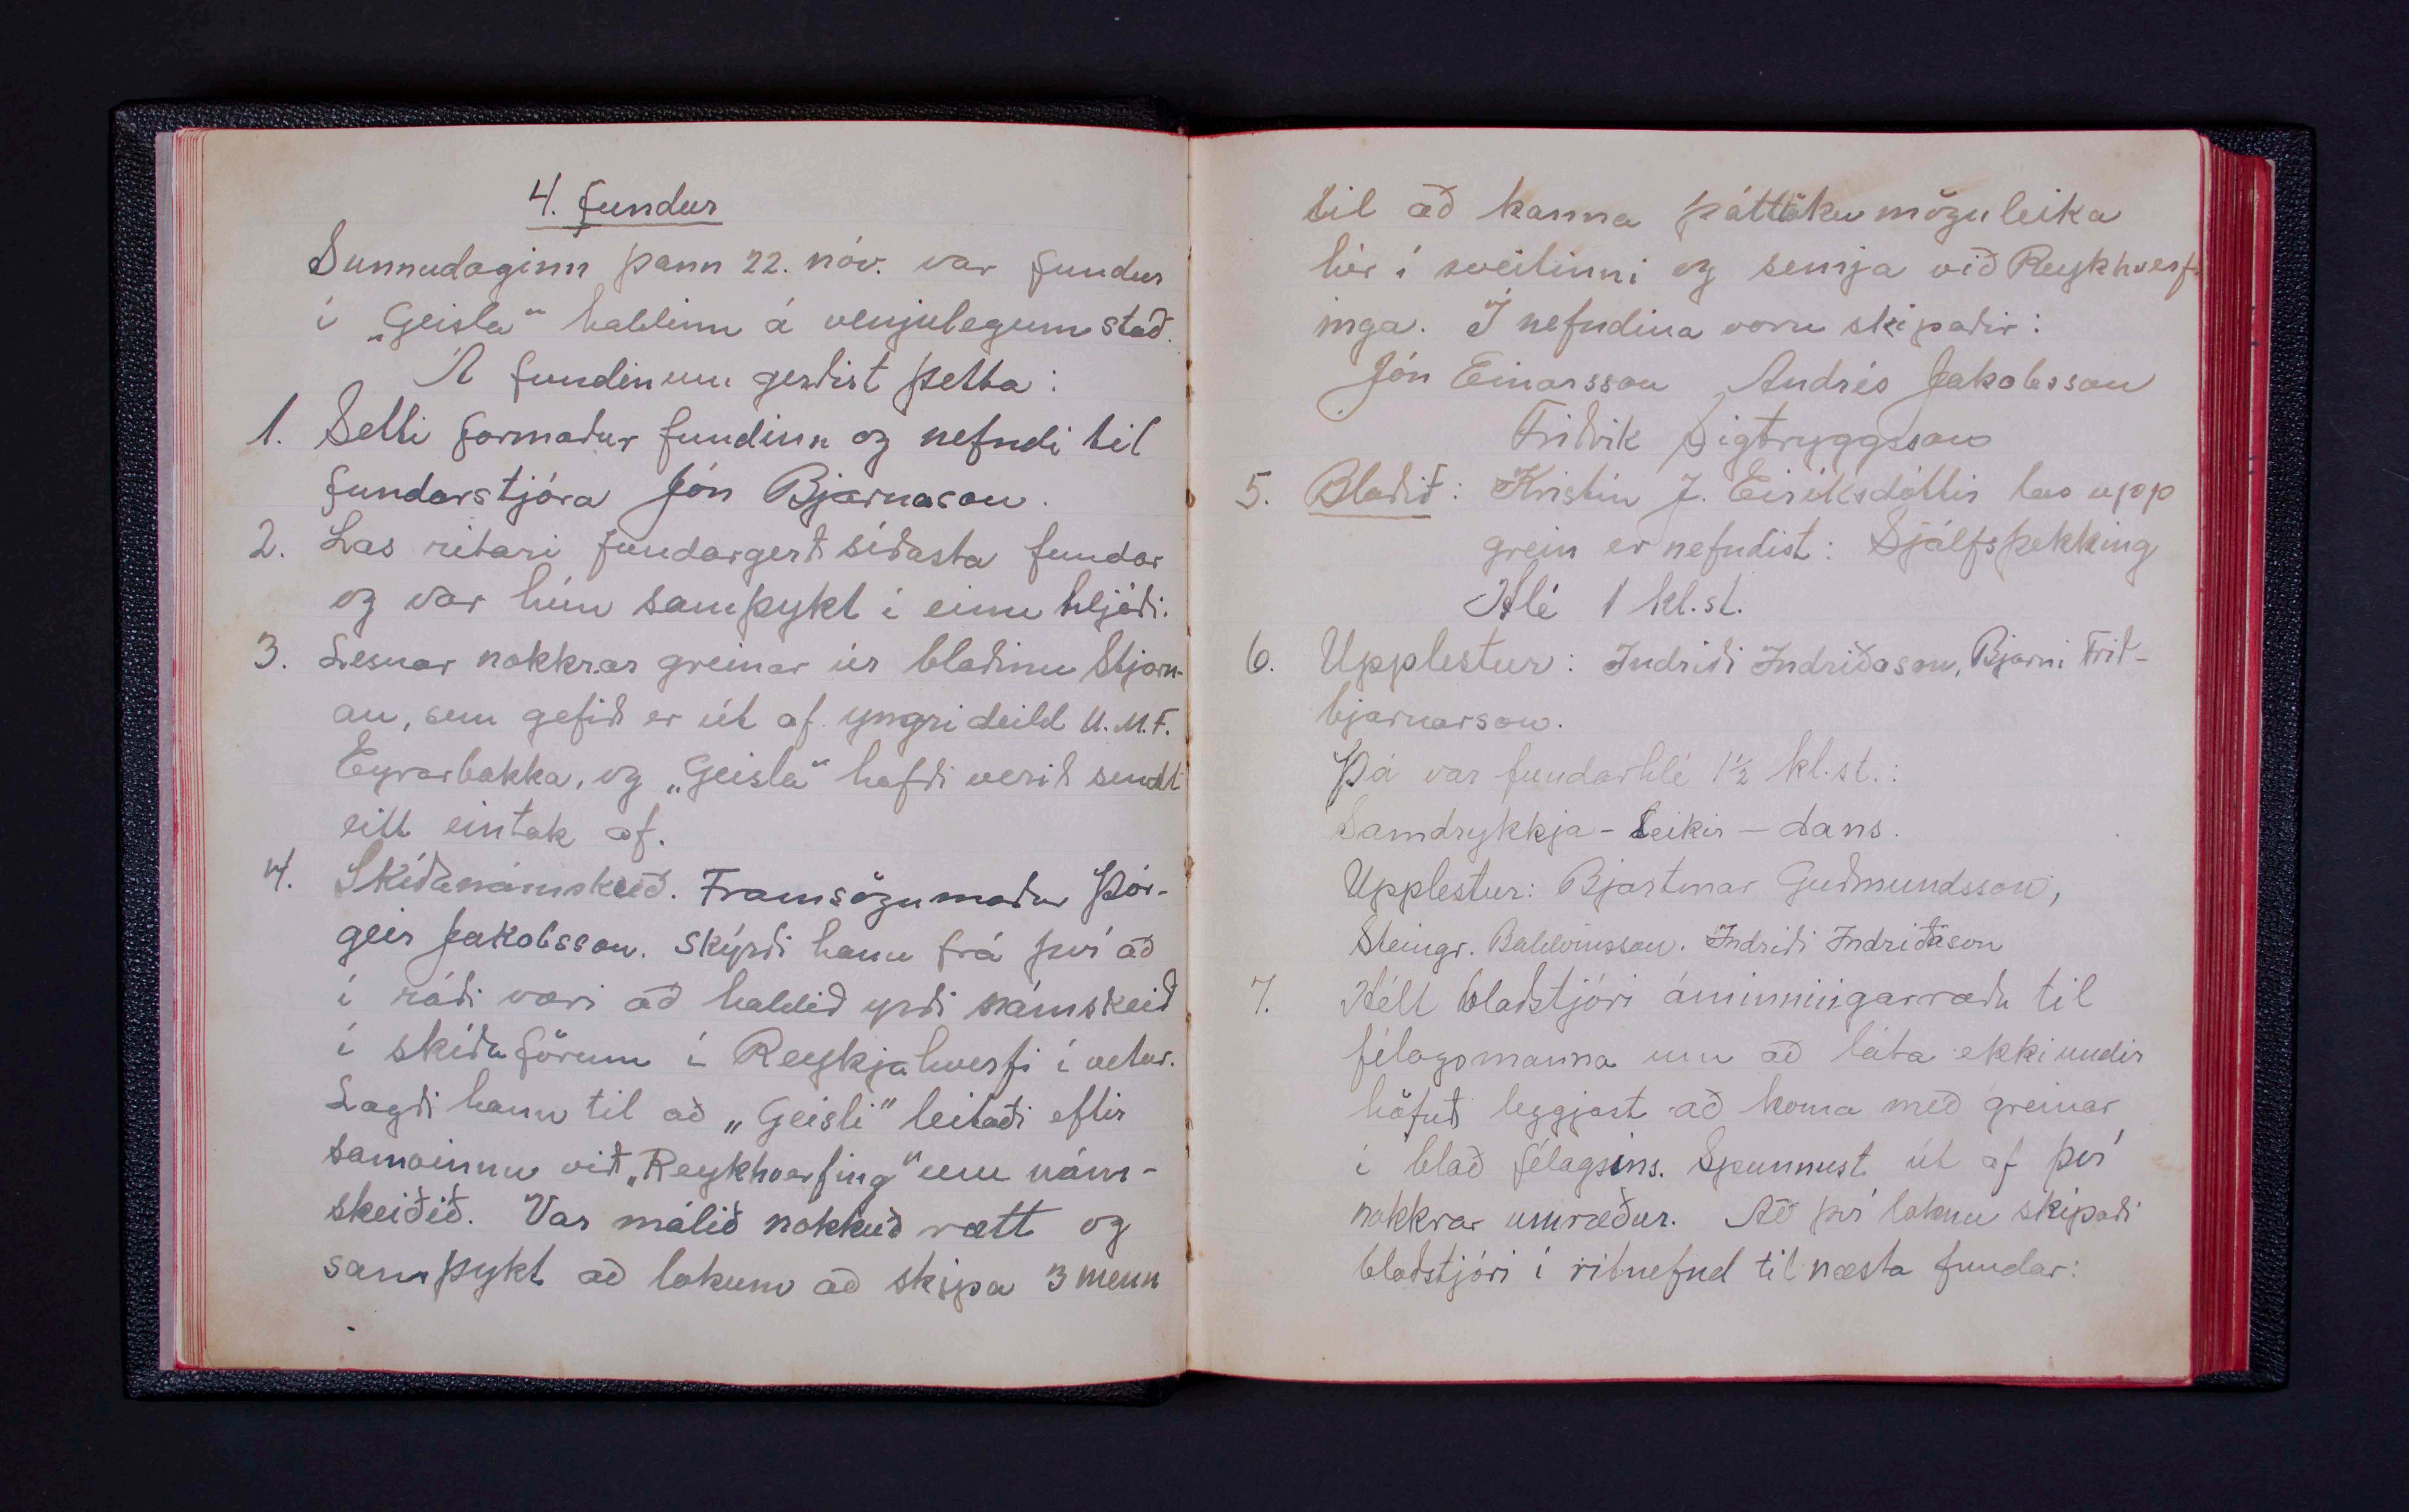 4. fundur
Sunnudaginn þann 22. nóv. var fundur
í „Geisla“ haldinn á venjulegum stað.
Á fundinum gerðist þetta:
1. Setti formaður fundinn og nefndi til
fundarstjóra Jón Bjarnason.
2. Las ritari fundargerð síðasta fundar
og var hún samþykt í einu hljóði.
3. Lesnar nokkrar greinar úr blaðinu Stjarn-
an, sem gefið er út af yngri deild U.M.F.
Eyrarbakka, og „Geisla“ hafði verið sendt
eitt eintak af.
4. Skíðanámskeið. Framsögumaður Þór-
geir Jakobsson. Skýrði hann frá því að
í ráði væri að haldið yrði námskeið
í skíðaförum í Reykjahverfi í vetur.
Lagði hann til að „Geisli“ leitaði eftir
samvinnu við „Reykhverfing“ um nám-
skeiðið. Var málið nokkuð rætt og
samþykt að lokum að skipa 3 menn
til að kanna þáttökumöguleika
hér í sveitinni og semja við Reykhverf-
inga. Í nefndina voru skipaðir:
Jón Einarsson Andrés Jakobsson
Friðrik Sigtryggsson
5. Blaðið: Kristín J. Eiríksdóttir las upp
grein er nefndist: Sjálfsþekking
Hlé 1 kl.st.
6. Upplestur: Indriði Indriðason, Bjarni Frið-
bjarnarson.
Þá var fundarhlé 1½ kl.st.:
Samdrykkja - Leikir - dans.
Upplestur: Bjartmar Guðmundsson,
Steingr. Baldvinsson. Indriði Indriðason
7. Hélt blaðstjóri áminningarræðu til
félagsmanna um að láta ekki undir
höfuð leggjast að koma með greinar
í blað félagsins. Spunnust út af því
nokkrar umræður. Að því loknu skipaði
blaðstjóri í ritnefnd til næsta fundar: